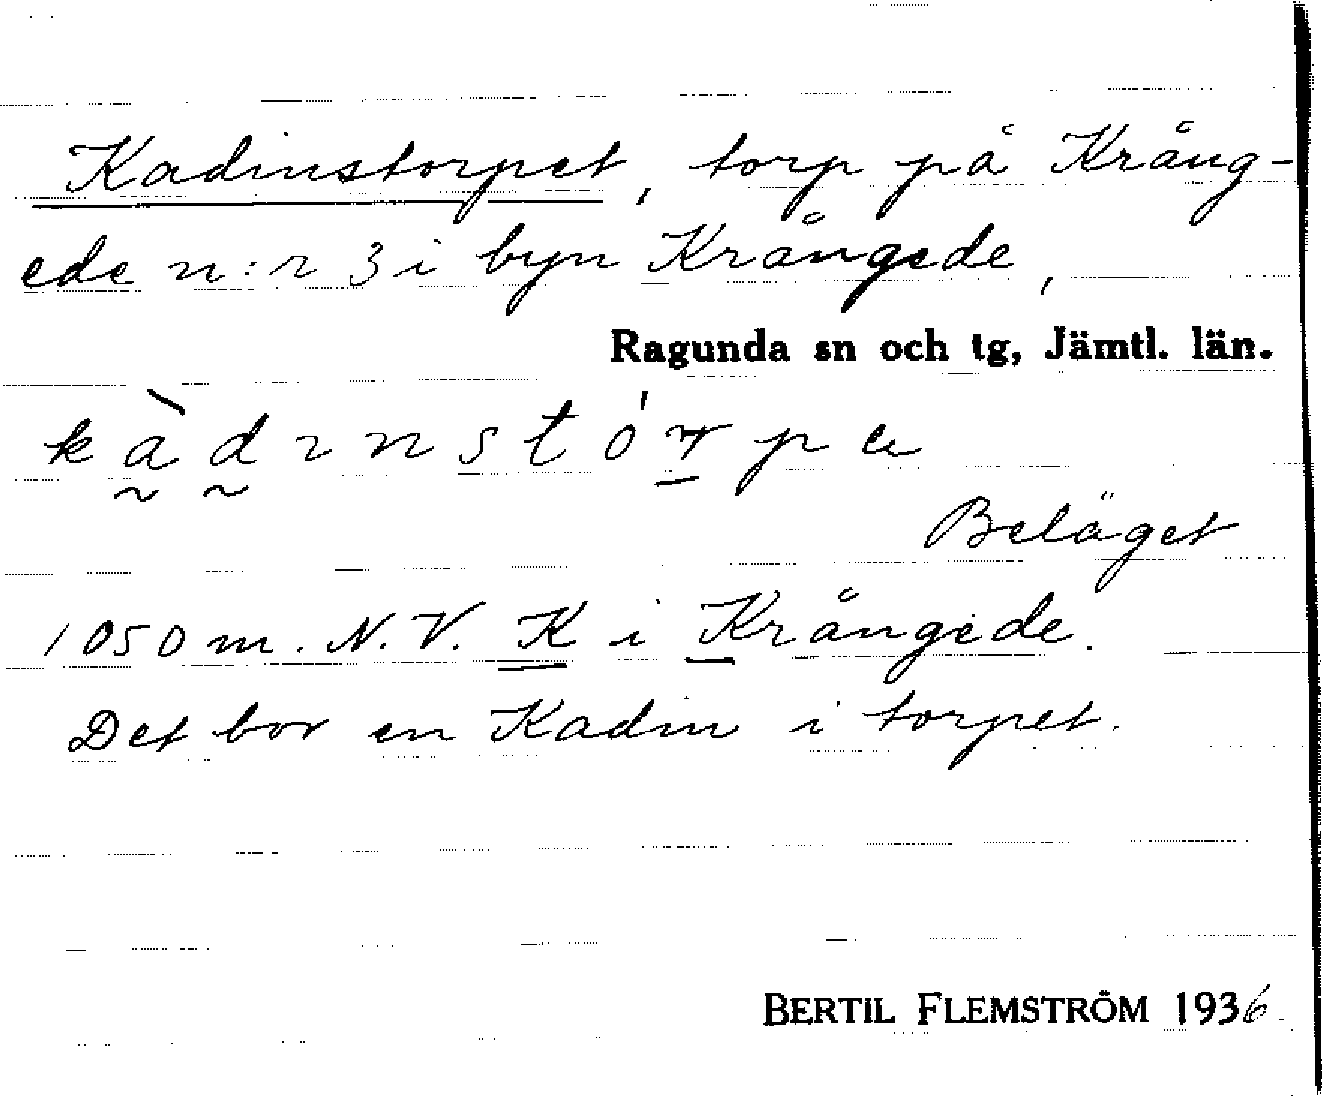 Kadinstorpet, torp på Krång-
ede n:r 3 i byn Krångede,
Ragunda sn och tg, Jämtl. län.
Beläget
1050 m. N.V. K i Krångede.
Det bor en Kadin i torpet.
BERTIL FLEMSTRÖM 1936